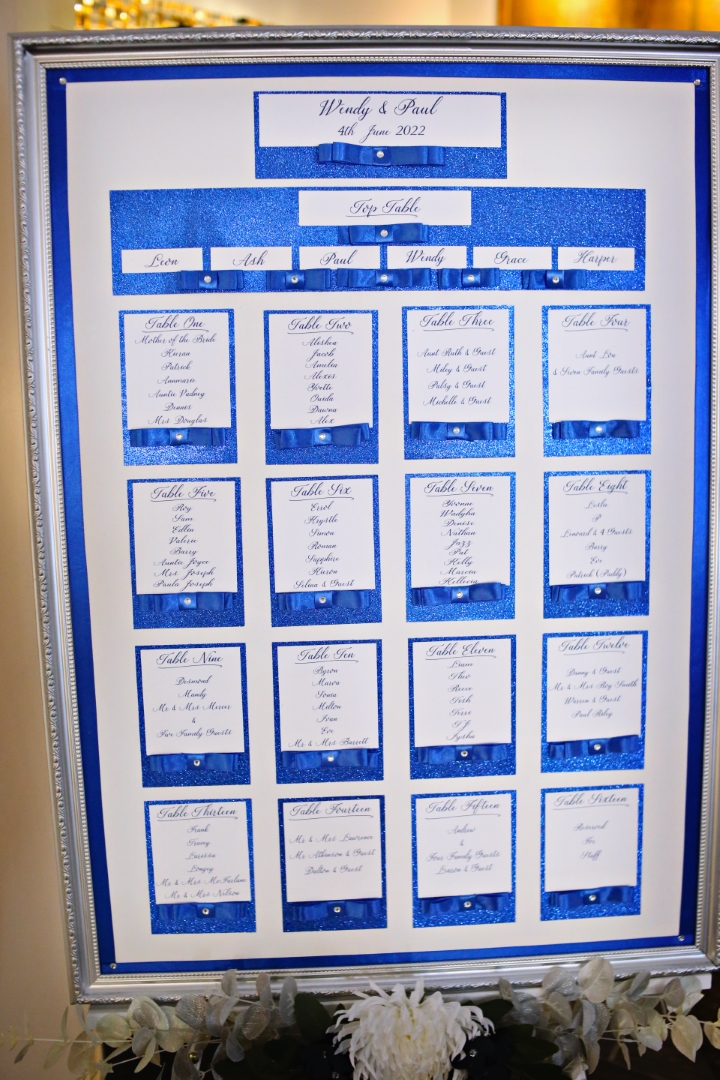 Wendy & Paul
4th June 2022
Top Table
Leon
Ash
Paul
Wendy
Grace
Harper
Table One
Mother of the Bride
Kieran
Patrick
Annmarie
Auntie
Dennis
Mrs Douglas
Table Two
Aleshea
Jacob
Amelia
Alexis
Yvette
Davina
Alex
Table Three
Aunt Ruth & Guest
Miley & Guest
Patsy & Guest
Michelle & Guest
Table Four
Aunt Lou
& Seven Family Guests
Table Five
Roy
Sam
Edlin
Valerie
Barry
Auntie Joyce
Mrs Joseph
Paula Joseph
Table Six
Errol
Krystle
Simon
Ronan
Sapphire
Kieron
& Guest
Table Seven
Yvonne
Denese
Nathan
Jazz
Pat
Kelly
Marcia
Kelleen
Table Eight
Leslie
P
Linvard & 4 Guests
Barry
Eve
Patrick (Paddy)
Table Nine
Desmond
Mandy
Mr & Mrs
&
Family Guests
Table Ten
Byron
Marva
Sonia
Milton
Ivan
Eve
Mr & Mrs Barrett
Table Eleven
Theo
Reece
Table Twelve
Danny & Guest
Mr & Mrs Roy Smith
Warren & Guest
Paul Riley
Table Thirteen
Frank
Lucessa
Mr & Mrs McFarlane
Mr & Mrs Nelson
Table Fourteen
Mr & Mrs Lawrence
Mr Atkinson & Guest
Dalton & Guest
Table Fifteen
Andrew
&
Four Family Guests
& Guest
Table Sixteen
Reserved
For
Staff